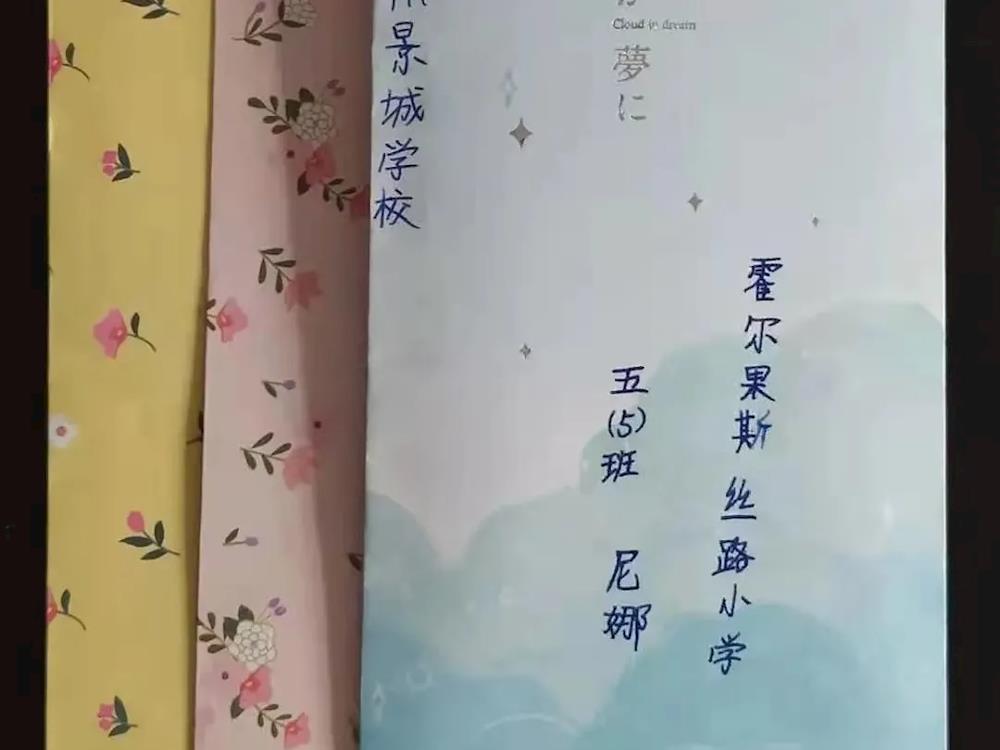 Cloud in dream
夢に
霍尔果斯丝路小学
五(5)班 尼娜
景城学校